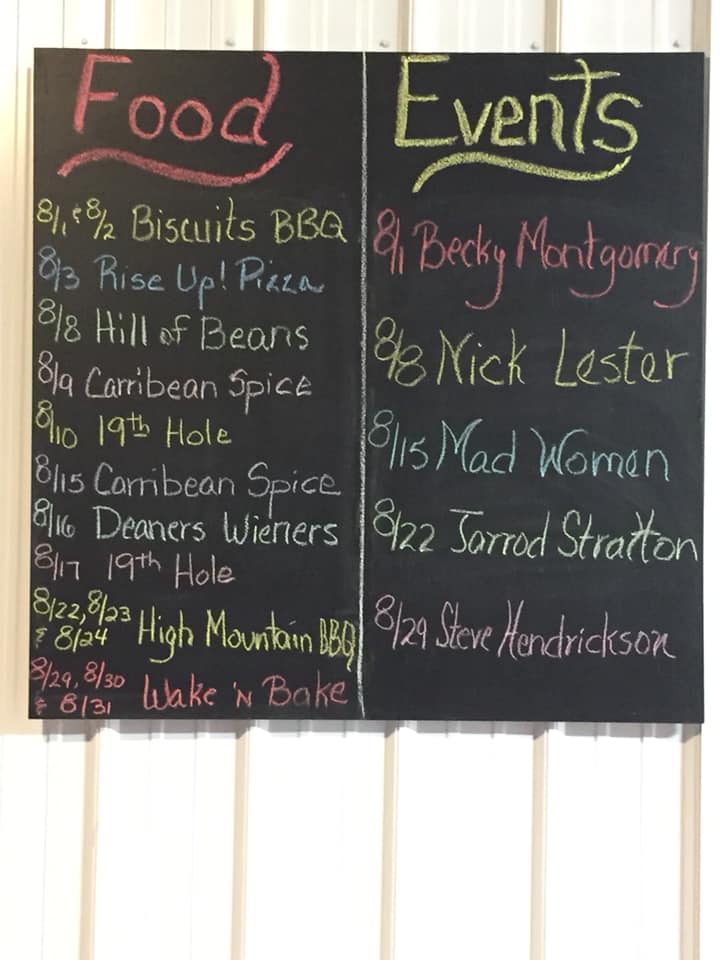 Food
8/1, & 8/2 Biscuits BBQ
8/3 Rise Up! Pizza
8/8 Hill of Beans
8/9 Carribean Spice
8/10 19th Hole
8/15 Carribean Spice
8/16 Deaners Wieners
8/17 19th Hole
8/22, 8/23
& 8/24 High Mountain BBQ
8/29, 8/30
& 8/31 Wake 'N Bake
Events
8/1 Becky Montgomery
8/8 Nick Lester
8/15 Mad Women
8/22 Jarrod Stratton
8/29 Steve Hendrickson